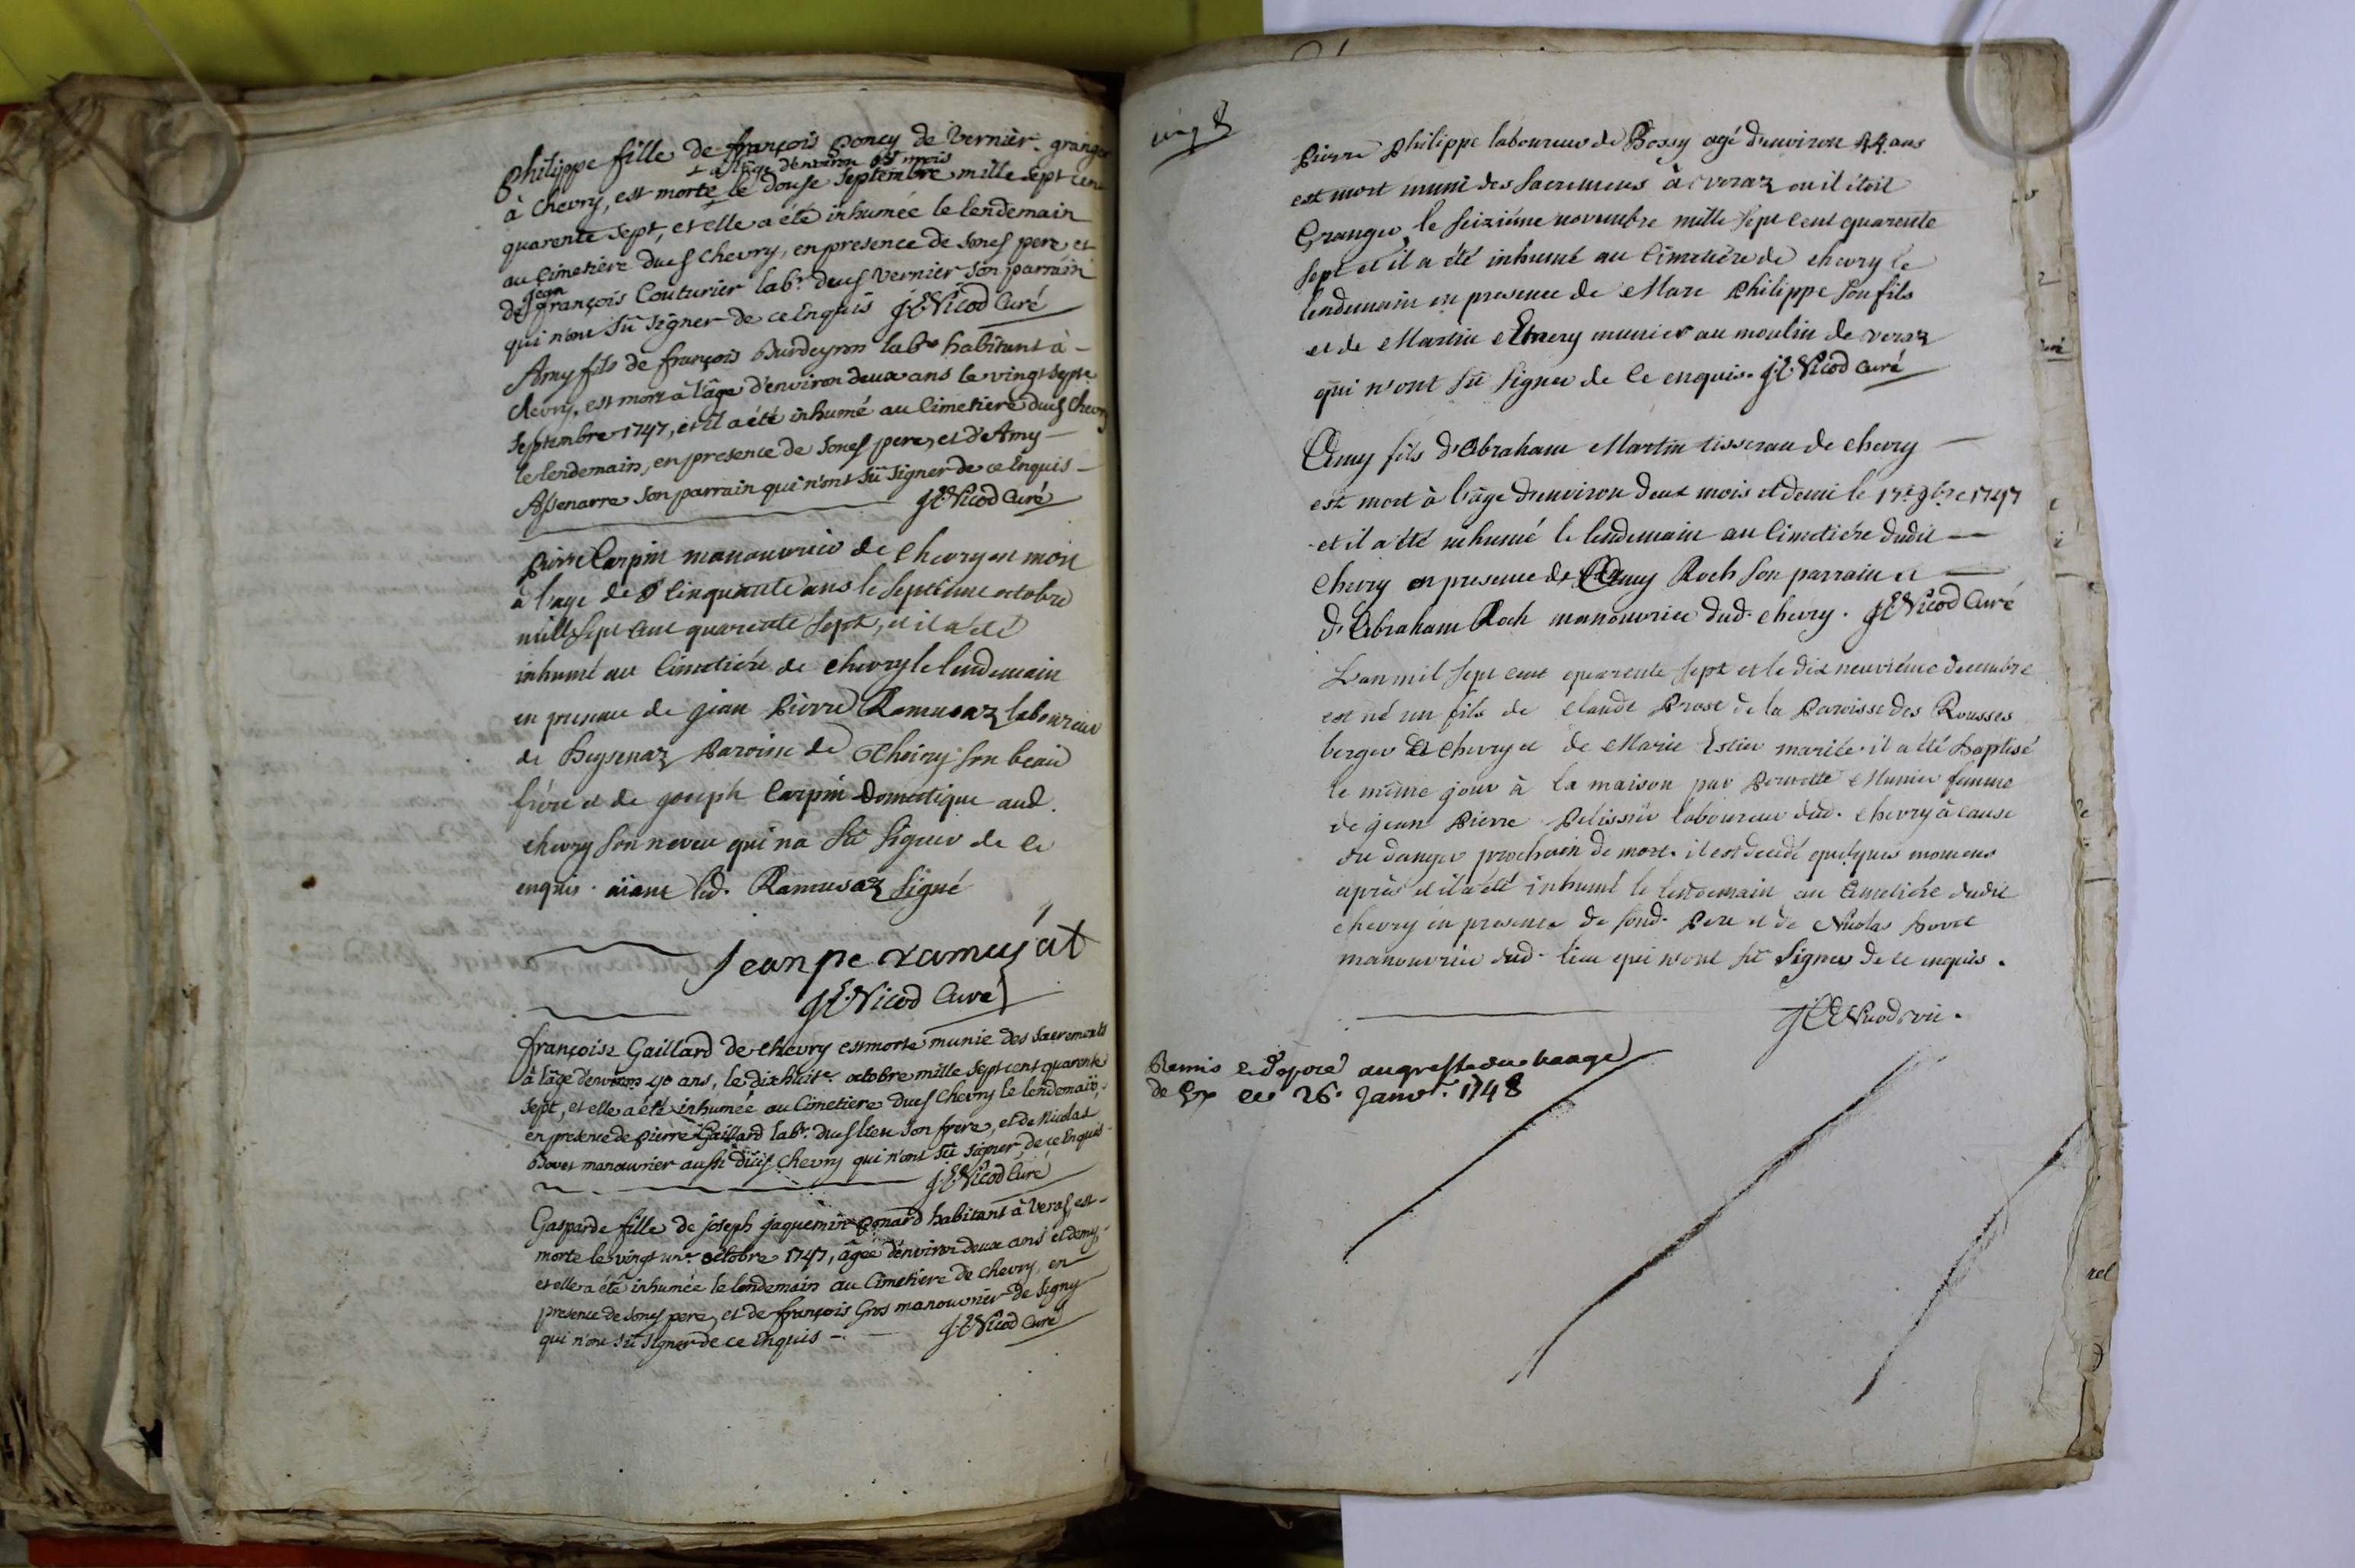 Philippe fille de françois Poncy de Vernier granger
+ a l'âge d'environ six mois
à Chevry, est morte le douse Septembre mille Sept cent
quarente sept, et elle a été inhumée le lendemain
au Cimetiere dud Chevry, en presence de Sond pere, et
Jean
de françois Couturier labr. dud Vernier Son parrain
qui n'ont Sû Signer de ce Enquis J.E. Nicod Curé
Amy fils de françois Burdeyron labr habitant à -
chevry, est mort à l'âge d'environ deux ans le vingt Sept
Septembre 1747, et il a été inhumé au Cimetiere dud Chevry
le lendemain, en presence de Sond pere, et d'Amy -
Assenarre Son parrain qui n'ont Sû Signer de ce Enquis -
J.E. Nicod Curé
Pierre Carpin manouvrier de Chevry est mort
à l'age de Cinquante ans le Septieme octobre
mille Sept Cent quarente Sept, et il a été
inhumé au Cimetiére de Chevry le lendemain
en presence de jean Pierre Ramusaz laboureur
de Paroisse de Thoiry Son beau
frére et de joseph Carpin Domestique aud.
chevry Son neveu qui na Sû Signer de ce
enquis. aïant led. Ramusaz Signé
Jean pe ramusat
J.E. Nicod Curé
françoise Gaillard de chevry est morte munie des Sacrements
à l'âge d'environ 40 ans, le dixhuite. octobre mille Sept cent quarente
Sept, et elle a été inhumée au Cimetiere dud Chevry le lendemain,
en presence de pierre Gaillard labr. dud lieu Son frere, et de Nicolas
Bovet manouvrier aussi dud. Chevry qui n'ont Sû Signer, de ce Enquis
J.E. Nicod Curé
Gasparde fille de joseph jaquemin Ponard habitant à Veras, est -
morte le vingt une. octobre 1747, âgée d'environ deux ans et demy,
et elle a été inhumée le lendemain au Cimetiere de chevry, en
presence de Sond pere, et de françois Gros manouvrier de Segny
qui n'ont Sû Signer de ce Enquis - J.E. Nicod Curé
Pierre Philippe laboureur de Bossy agé d'environ 44 ans
est mort muni des Sacremens à veraz ou il étoit
Granger, le Seiziéme novembre mille Sept Cent quarente
Sept et il a été inhumé au Cimetiére de chevry le
lendemain en presence de Marc Philippe Son fils
et de Martin Emery munier au moulin de veraz
qui n'ont Sû Signer de ce enquis. J.E. Nicod Curé
Amy fils d'Abraham Martin tisseran de chevry
est mort à l'âge d'environ deux mois et demi le 17e 9bre 1747
et il a été inhumé le lendemain au Cimetiére dudit
Chevry en presence de Amy Roch Son parrain et
d'Abraham Roch manouvrier dud. chevry. J.E. Nicod Curé
L'an mil Sept cent quarente Sept et le dix neuviéme decembre
est né un fils de Claude Prost de la Paroisse des Rousses
berger à Chevry et de Marie mariée. il a été baptisé
le même jour à la maison par Pernette Munier femme
de jean Pierre Pelissier laboureur dud. Chevry à cause
du danger prochain de mort. il est decedé quelques momens
après et il a été inhumé le lendemain au Cimetiére dudit
chevry en presence de Sond. Pere et de Nicolas Bovet
manouvrier dud. lieu qui n'ont Sû Signer de ce enquis.
J.E. Nicod
Remis et deposé au greffe du baage
de Gex ce 26. Janvr. 1748